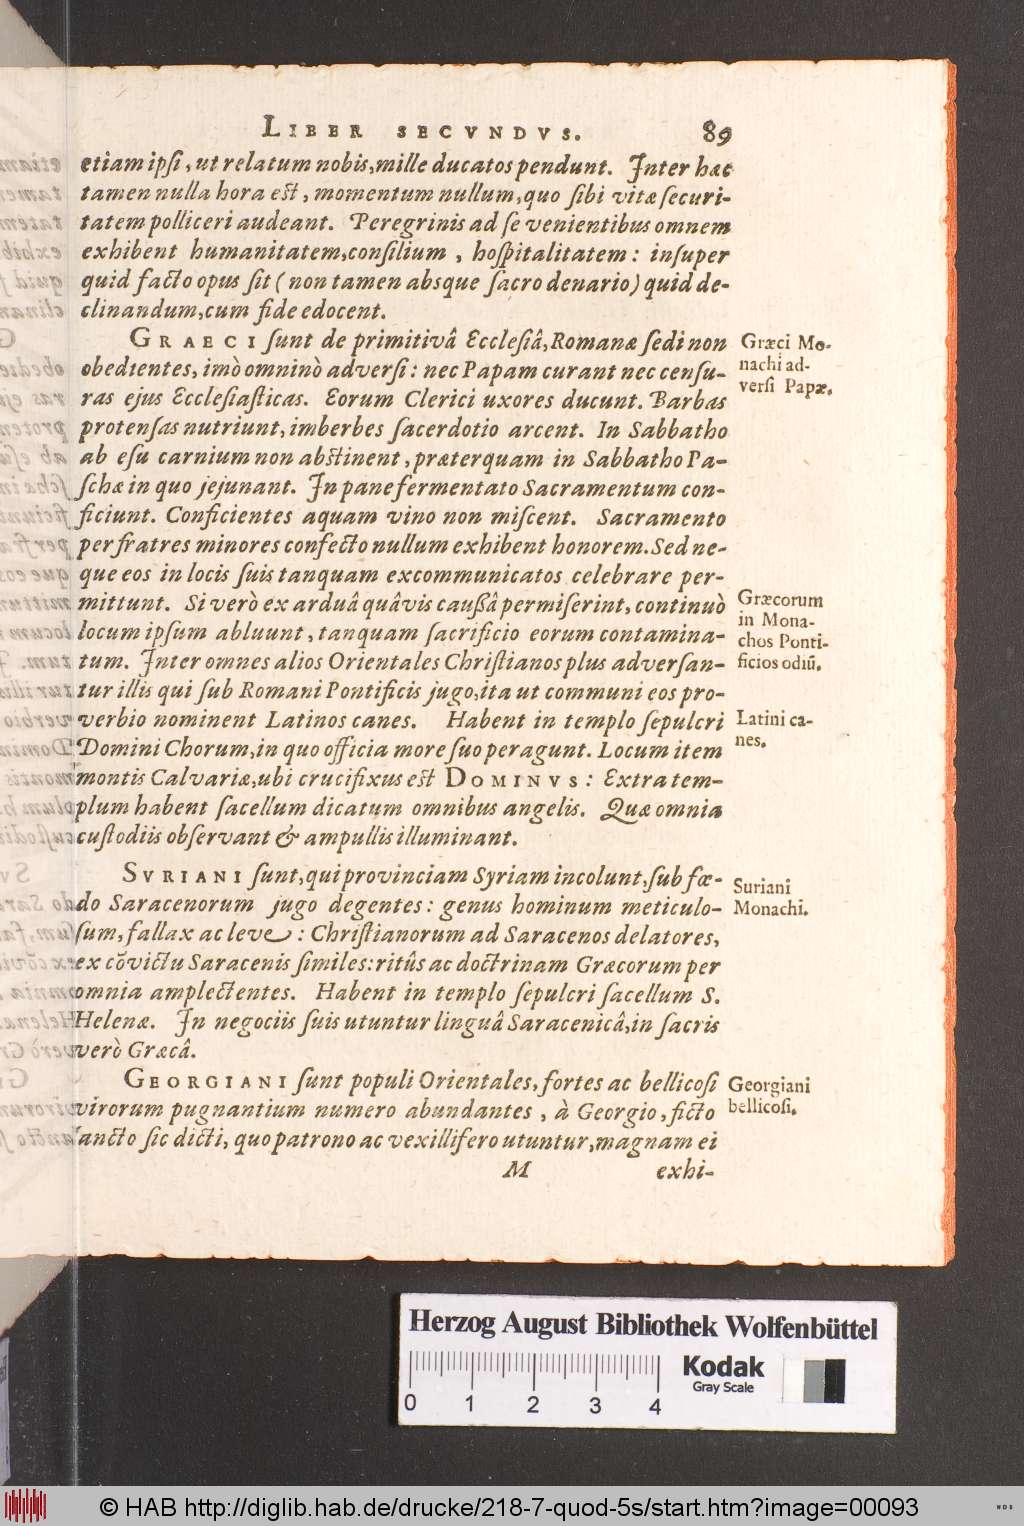 LIBER SECVNDVS. 89
etiam ipsi, ut relatum nobis, mille ducatos pendunt. Inter hæc
tamen nulla hora est, momentum nullum, quo sibi vitæ securi-
tatem polliceri audeant. Peregrinis ad se venientibus omnem
exhibent humanitatem, consilium, hospitalitatem: insuper
quid facto opus sit (non tamen absque sacro denario) quid de-
clinandum, cum fide edocent.
GRAECI sunt de primitivâ Ecclesiâ, Romanæ sedi non
obedientes, imò omninò adversi: nec Papam curant nec censu-
ras ejus Ecclesiasticas. Eorum Clerici uxores ducunt. Barbas
protensas nutriunt, imberbes sacerdotio arcent. In Sabbatho
ab esu carnium non abstinent, præterquam in Sabbatho Pa-
schæ in quo jejunant. In pane fermentato Sacramentum con-
ficiunt. Conficientes aquam vino non miscent. Sacramento
per fratres minores confecto nullum exhibent honorem. Sed ne-
que eos in locis suis tanquam excommunicatos celebrare per-
mittunt. Si verò ex arduâ quâvis caussâ permiserint, continuò
locum ipsum abluunt, tanquam sacrificio eorum contamina-
tum. Inter omnes alios Orientales Christianos plus adversan-
tur illis qui sub Romani Pontificis jugo, ita ut communi eos pro-
verbio nominent Latinos canes. Habent in templo sepulcri
Domini Chorum, in quo officia more suo peragunt. Locum item
montis Calvariæ, ubi crucifixus est DOMINVS: Extra tem-
plum habent sacellum dicatum omnibus angelis. Quæ omnia
custodiis observant & ampullis illuminant.
SVRIANI sunt, qui provinciam Syriam incolunt, sub fœ-
do Saracenorum jugo degentes: genus hominum meticulo-
sum, fallax ac leve: Christianorum ad Saracenos delatores,
ex cõvictu Saracenis similes: ritûs ac doctrinam Græcorum per
omnia amplectentes. Habent in templo sepulcri sacellum S.
Helenæ. In negociis suis utuntur linguâ Saracenicâ, in sacris
verò Græcâ.
GEORGIANI sunt populi Orientales, fortes ac bellicosi
virorum pugnantium numero abundantes, à Georgio, ficto
sancto sic dicti, quo patrono ac vexillifero utuntur, magnam ei
M exhi-
Græci Mo-
nachi ad-
versi Papæ.
Græcorum
in Mona-
chos Ponti-
ficios odiũ.
Latini ca-
nes.
Suriani
Monachi.
Georgiani
bellicosi.
Herzog August Bibliothek Wolfenbüttel
Kodak
Gray Scale
0 1 2 3 4
© HAB http://diglib.hab.de/drucke/218-7-quod-5s/start.htm?image=00093